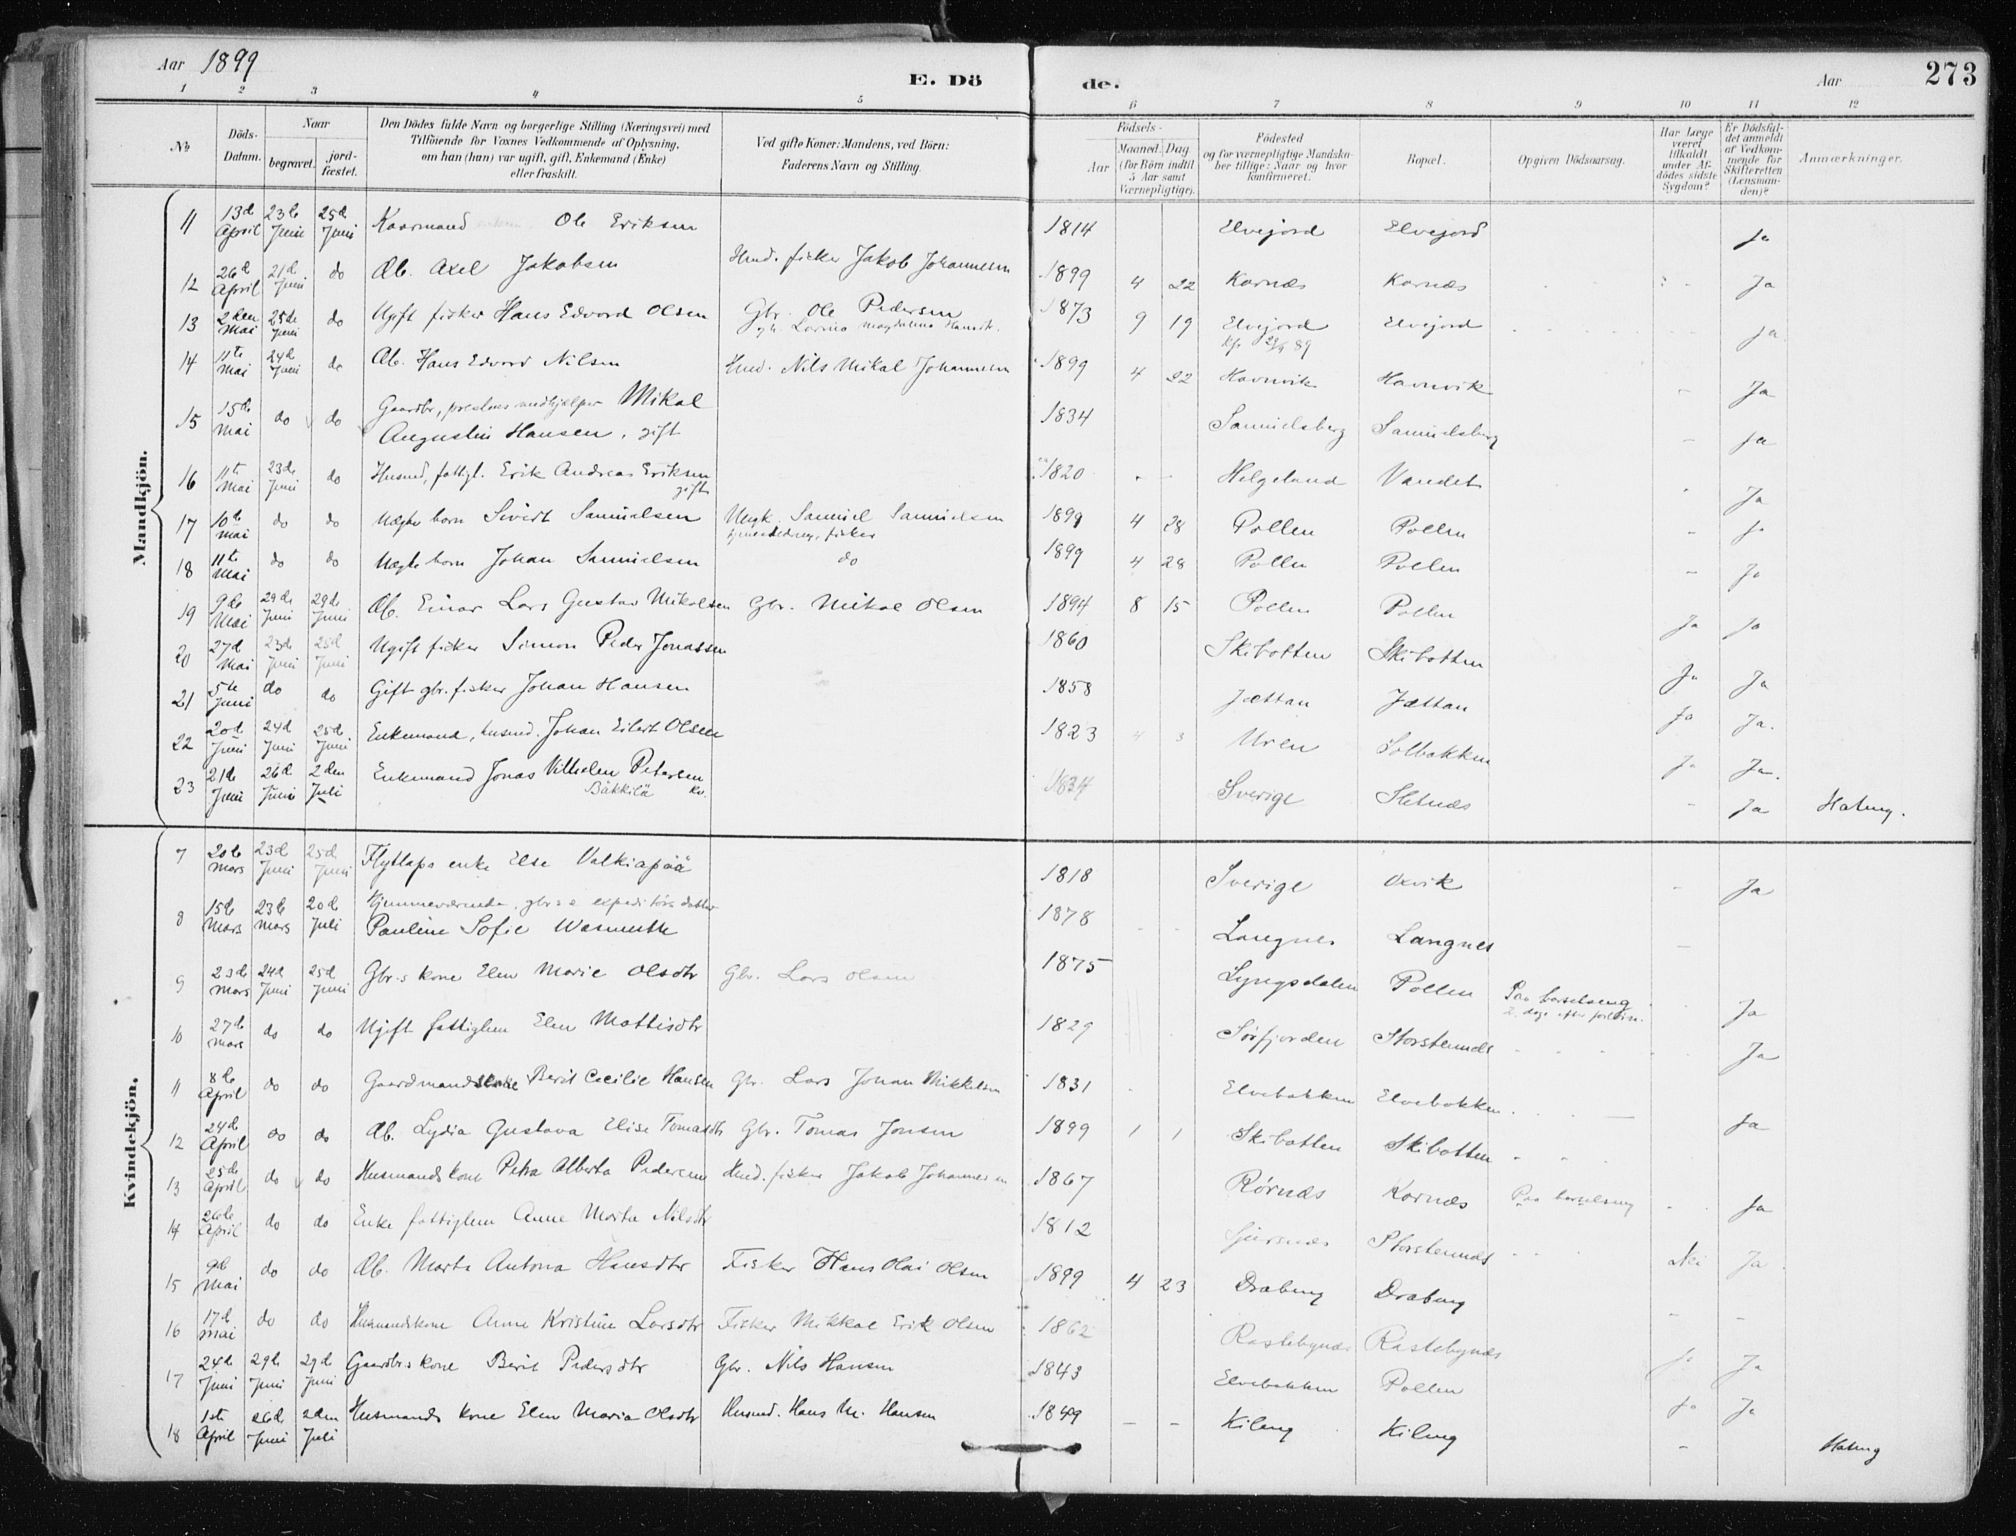 Aar 1899
E. Dö
de.
Aar
273
1 2 3 4 5 6 7 8 9 10 11 12
No
Döds-Datum.
Naar
begravet.
jord-fæstet.
Den Dödes fulde Navn og borgerlige Stilling (Næringsvei) med
Tilföiende for Voxnes Vedkommende af Oplysning,
om han (hun) var ugift, gift, Enkemand (Enke)
eller fraskilt.
Ved gifte Koner: Mandens, ved Börn:
Faderens Navn og Stilling.
Födsels-
Aar
Maaned. Dag
(for Börn indtil
5 Aar samt
Værnepligtige).
Födested
og for værnepligtige Mandskaber tillige: Naar og hvor konfirmeret.
Bopæl.
Opgiven Dödsaarsag.
Har Læge været tilkaldt under Afdödes sidste Sygdom?
Er Dödsfaldet anmeldt af Vedkommende for Skifteretten (Lensmanden)?
Anmærkninger.
Mandkjön.
11 13d April 23d Juni 25d Juni Kaarmand Ole Eriksen 1814 Elvejord Elvejord Ja
12 26d April 21d Juni do Ab. Axel Jakobsen Husmd. fisker Jakob Johannesen 1899 4 22 Kornæs Kornæs Ja
13 2den Mai 25de Juni do Ugift fisker Hans Edvard Olsen Gbr. Ole Pedersen 1873 9 19 Elvejord Elvejord Ja
14 11te Mai 24d Juni do Ab. Hans Edvard Nilsen Husmd. Nils Mikal Johannesen 1899 4 22 Havnvik Havnvik - Ja
15 15de Mai do do Gaardbr, prestens medhjælper Mikal
Augustin Hansen, gift 1834 Samuelsberg Samuelsberg - Ja
16 11te Mai 23de Juni do Husmd, fattigl. Erik Andreas Eriksen
gift 1820 - - Helgeland Vandet Ja
17 10de Mai do do Uægte barn Sivert Samuelsen Ungk. Samuel Samuelsen
fisker 1899 4 28 Pollen Pollen - Ja
18 11te Mai do do Uægte barn Johan Samuelsen do 1899 4 28 Pollen Pollen - Ja
19 9de Mai 29de Juni 29de Juni Ab. Einar Lars Gustav Mikalsen Gbr. Mikal Olsen 1894 8 15 Pollen Pollen Ja Ja
20 27d Mai 23d Juni 25d Juni Ugift fisker Simon Peder Jonassen 1860 Skibotten Skibotten Ja Ja
21 5te Juni do do Gift gbr. fisker Johan Hansen 1858 Jættan Jættan Ja Ja.
22 20d Juni 24d Juni 25d Juni Enkemand, husmd. Johan Eilert Olsen 1823 4 3 Uren Solbakken Ja Ja.
23 21de Juni 26d Juni 2den Juli Enkemand Jonas Vilhelm Petersen
Bäkkilä kv. 1834 Sverige Sletnæs - Ja Hateng.
Kvindekjön.
7 20de Mars 23d Juni 25d Juni Flytlaps enke Else Valkiapää 1818 Sverige Oxvik - Ja
8 15de Mars 23de Mars 20d Juli Hjemmeværende, gbr.s expeditörs datter
Pauline Sofie Wasmuth 1878 - - Langnes Langnes -
9 23d Mars 24d Juni 25d Juni Gbr.s kone Elen Marie Olsdtr Gbr. Lars Olsen 1875 Lyngsdalen Pollen Paa barselseng
2 dage efter Ja
10 27de Mars do do Ugift fattiglem Elen Mattisdtr 1829 Sörfjorden Storstennæs Ja
11 8de April do do Gaardmandskone Berit Cecilie Hansen Gbr. Lars Johan Mikkelsen 1831 Elvebakken Elvebakken Ja
12 24de April do do Ab. Lydia Gustava Elise Tomasdtr Gbr. Tomas Jonsen 1899 1 1 Skibotten Skibotten
13 25de April do do Husmandskone Petra Alberta Pedersen Husmd. fisker Jakob Johannesen 1867 Rörnæs Kornæs Paa barselseng Ja
14 26de April do do Enke fattiglem Anne Marta Nilsdtr 1812 Gjuvsnæs Storstennæs Nei Ja
15 9de Mai do do Ab. Marta Antona Hansdtr Fisker Hans Olai Olsen 1899 4 23 Drabeng Drabeng - -
16 17de Mai do do Husmandskone Anne Kristine Larsdtr Fisker Mikkal Erik Olsen 1862 Rastebynæs Rastebynæs Ja Ja
17 24de Juni 29de Juni 29de Juni Gaardbr.s kone Berit Pedersdtr Gbr. Nils Hansen 1843 Elvebakken Pollen Ja Ja
18 1ste April 26de Juni 2den Juli Husmands kone Elen Maria Olsdtr Husmd. Hans M. Hansen 1849 - - Kileng Kileng - Hateng